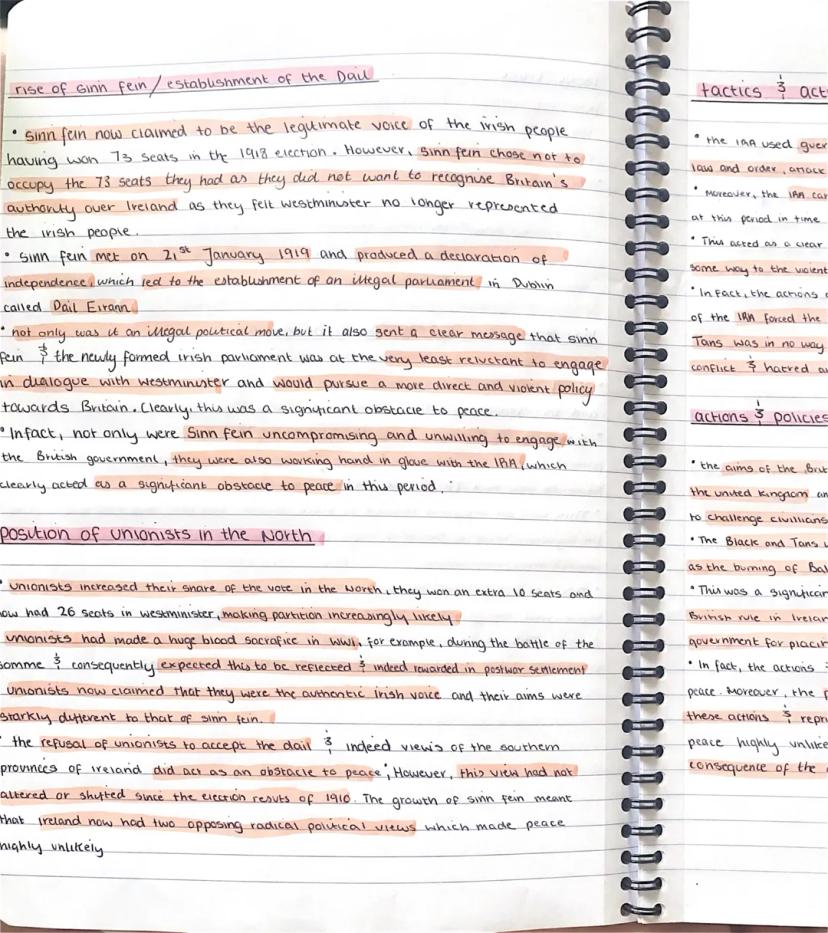 rise of sinn fein / establishment of the Dail
• sinn fein now claimed to be the legitimate voice of the irish people
having won 73 seats in the 1918 election. However, sinn fein chose not to
occupy the 73 seats they had as they did not want to recognise Britain's
authority over Ireland as they felt westminster no longer represented
the irish people.
• sinn fein met on 21st January 1919 and produced a declaration of
independence, which led to the establishment of an illegal parliament in Dublin
called Dail Eirann.
• not only was it an illegal political move, but it also sent a clear message that sinn
fein & the newly formed irish parliament was at the very least reluctant to engage
in dialogue with westminster and would pursue a more direct and violent policy
towards Britain. Clearly, this was a significant obstacle to peace.
• Infact, not only were Sinn fein uncompromising and unwilling to engage with
the British government, they were also working hand in glove with the IRA, which
clearly acted as a significant obstacle to peace in this period.
position of unionists in the North
• unionists increased their share of the vote in the North, they won an extra 10 seats and
now had 26 seats in westminister, making partition increasingly likely.
unionists had made a huge blood sacrafice in WW1, for example, during the battle of the
somme & consequently expected this to be reflected & indeed rewarded in postwar settlement
unionists now claimed that they were the authentic irish voice and their aims were
starkly different to that of sinn fein.
• the refusal of unionists to accept the dail & indeed views of the southern
provinces of ireland did act as an obstacle to peace; However, this view had not
altered or shifted since the election results of 1910. The growth of sinn fein meant
that ireland now had two opposing radical political views which made peace
highly unlikely
tactics &
• the IRA used
law and order, attack
• Moreover, the IRA
at this period in time
• This acted as a clear
some way to the violent
• In fact, the actions
of the IRA forced the
Tans was in no way
conflict & hatred
actions & policies
• the aims of the
the united kingdom
to challenge civillians
• The Black and Tans
as the burning of
• This was a
British rule in
government for
• In fact, the actions
peace. Moreover, the
these actions &
peace highly
consequence of the